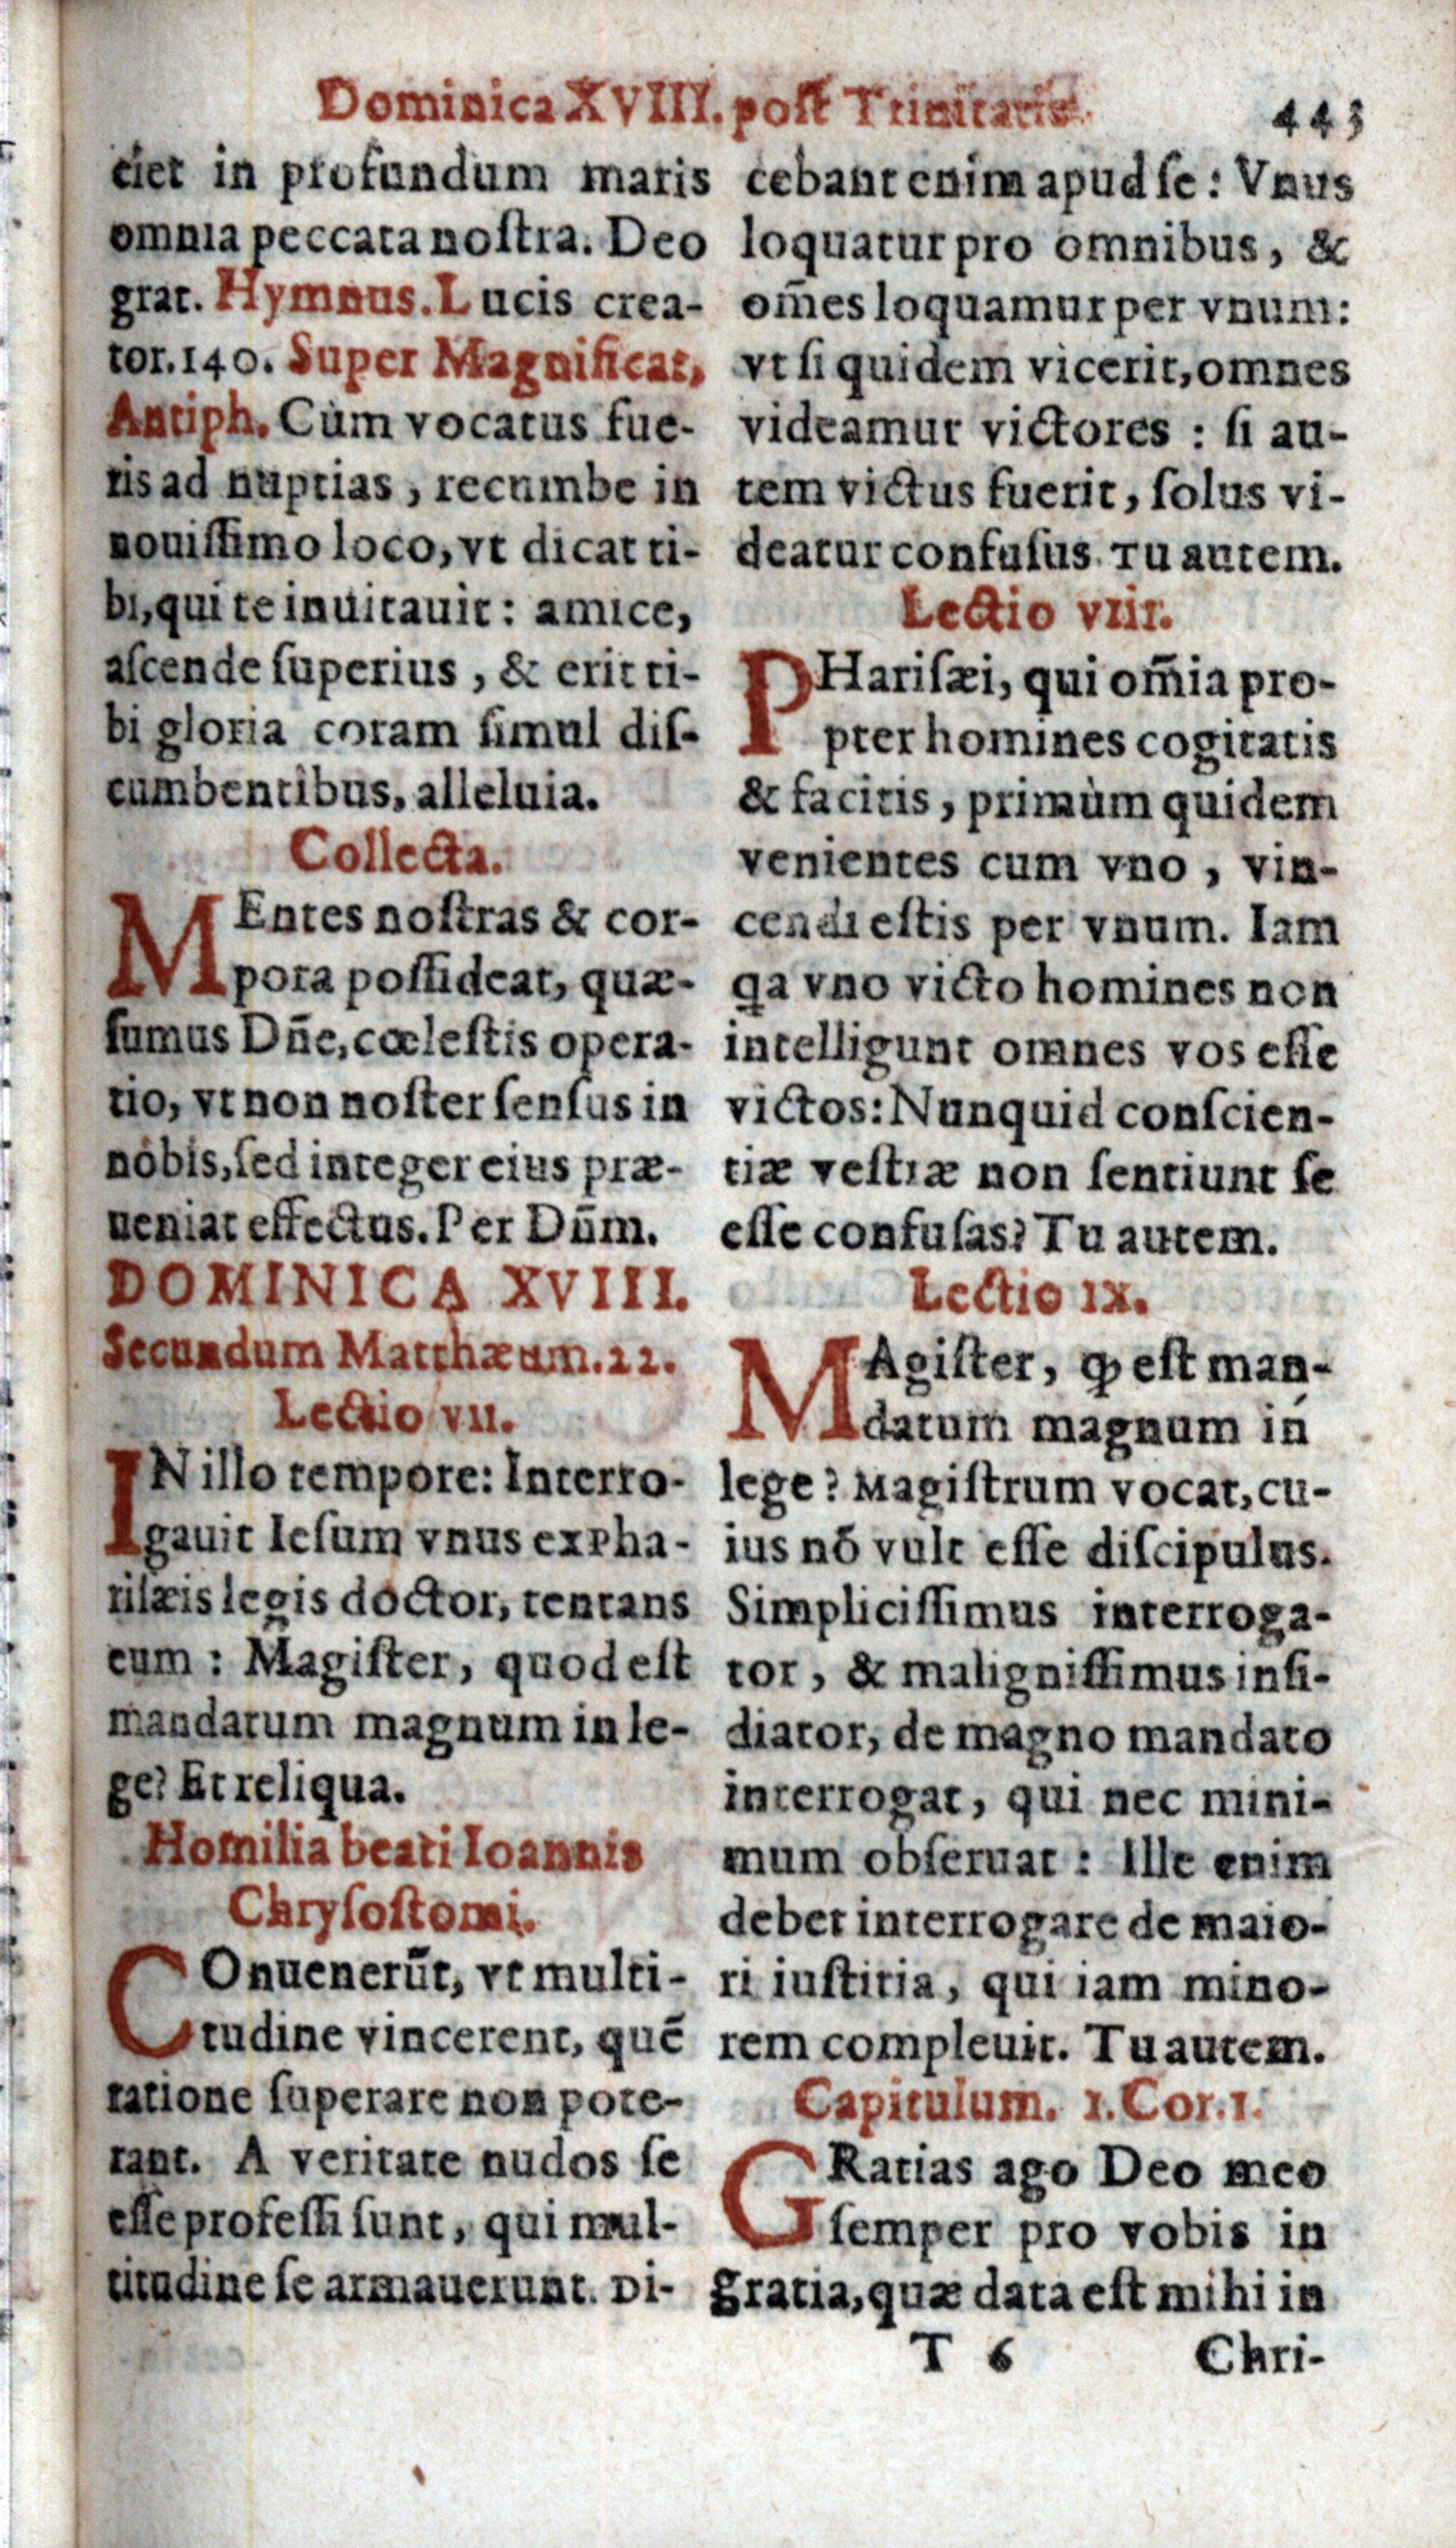 Dominica XVIII. poſt Trinitatis. 443
ciet in profundum maris
omnia peccata noſtra. Deo
grat. Hymnus. Lucis crea-
tor. 140. Super Magnificat,
Antiph. Cùm vocatus fue-
ris ad nuptias, recumbe in
nouiſſimo loco, vt dicat ti-
bi, qui te inuitauit: amice,
aſcende ſuperius, & erit ti-
bi gloria coram ſimul diſ-
cumbentibus, alleluia.
Collecta.
MEntes noſtras & cor-
pora poſſideat, quæ-
ſumus Dñe, cœleſtis opera-
tio, vt non noſter ſenſus in
nobis, ſed integer eius præ-
ueniat effectus. Per Dn̄m.
DOMINICA XVIII.
Secundum Matthæum. 22.
Lectio vii.
IN illo tempore: Interro-
gauit Ieſum vnus ex Pha-
riſæis legis doctor, tentans
eum: Magiſter, quod eſt
mandatum magnum in le-
ge? Et reliqua.
Homilia beati Ioannis
Chryſoſtomi.
COnuenerūt, vt multi-
tudine vincerent, quē
ratione ſuperare non pote-
rant. A veritate nudos ſe
eſſe profeſſi ſunt, qui mul-
titudine ſe armauerunt. Di-
cebant enim apud ſe: Vnus
loquatur pro omnibus, &
om̄es loquamur per vnum:
vt ſi quidem vicerit, omnes
videamur victores: ſi au-
tem victus fuerit, ſolus vi-
deatur confuſus. Tu autem.
Lectio viii.
PHariſæi, qui om̄ia pro-
pter homines cogitatis
& facitis, primùm quidem
venientes cum vno, vin-
cendi eſtis per vnum. Iam
qa vno victo homines non
intelligunt omnes vos eſſe
victos: Nunquid conſcien-
tiæ veſtræ non ſentiunt ſe
eſſe confuſas? Tu autem.
Lectio ix.
MAgiſter, ꝙ eſt man-
datum magnum in
lege? Magiſtrum vocat, cu-
ius nō vult eſſe diſcipulus.
Simpliciſſimus interroga-
tor, & maligniſſimus inſi-
diator, de magno mandato
interrogat, qui nec mini-
mum obſeruat: Ille enim
debet interrogare de maio-
ri iuſtitia, qui iam mino-
rem compleuit. Tu autem.
Capitulum. 1. Cor. 1.
GRatias ago Deo meo
ſemper pro vobis in
gratia, quæ data eſt mihi in
T 6 Chri-